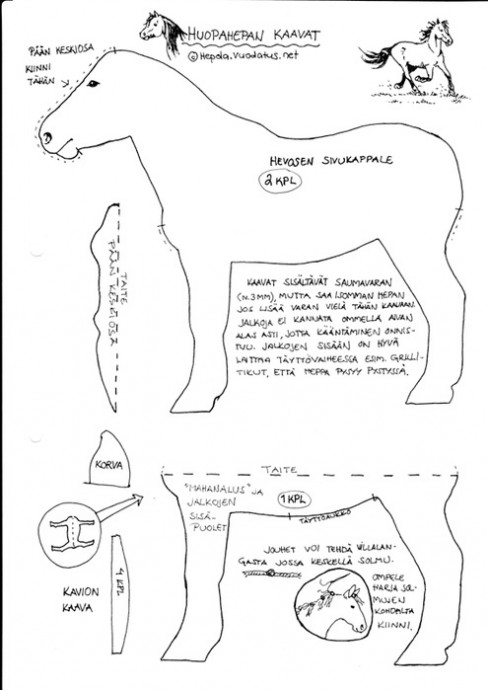 HUOPAHEPAN KAAVAT
© Hepola.vuodatus.net
PÄÄN KESKIOSA
KIINNI
TÄHÄN
HEVOSEN SIVUKAPPALE
2 KPL
TAITE
PÄÄN KESKIOSA
KAAVAT SISÄLTÄVÄT SAUMAVARAN
(N. 3 MM), MUTTA SAA ISOMMAN HEPAN
JOS LISÄÄ VARAN VIELÄ TÄHÄN KAAVAAN.
JALKOJA EI KANNATA OMMELLA AIVAN
ALAS ASTI, JOTTA KÄÄNTÄMINEN ONNIS-
TUU. JALKOJEN SISÄÄN ON HYVÄ
LAITTAA TÄYTTÖVAIHEESSA ESIM. GRILLI-
TIKUT, ETTÄ HEPPA PYSYY PYSTYSSÄ.
KORVA
TAITE
"MAHANALUS" JA
JALKOJEN
SISÄ-
PUOLET
1 KPL
TÄYTTÖAUKKO
KAVION
KAAVA
4 KPL
JOUHET VOI TEHDÄ VILLALAN-
GASTA JOSSA KESKELLÄ SOLMU.
OMPELE
HARJA SOL-
MUJEN
KOHDALTA
KIINNI.